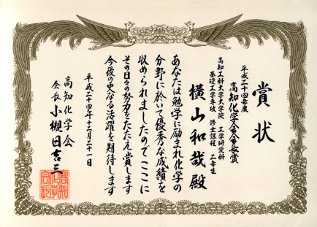 賞状
平成二十四年度
高知化学会会長賞
高知工科大学大学院 工学研究科
基盤工学専攻 修士課程 二年生
横山和哉 殿
あなたは勉学に励まれ化学の
分野に於いて優秀な成績を
収められましたのでここに
その日々の努力をたたえ賞します
今後の更なる活躍を期待します
平成二十四年十二月二十一日
高知化学会
会長 小槻日吉三